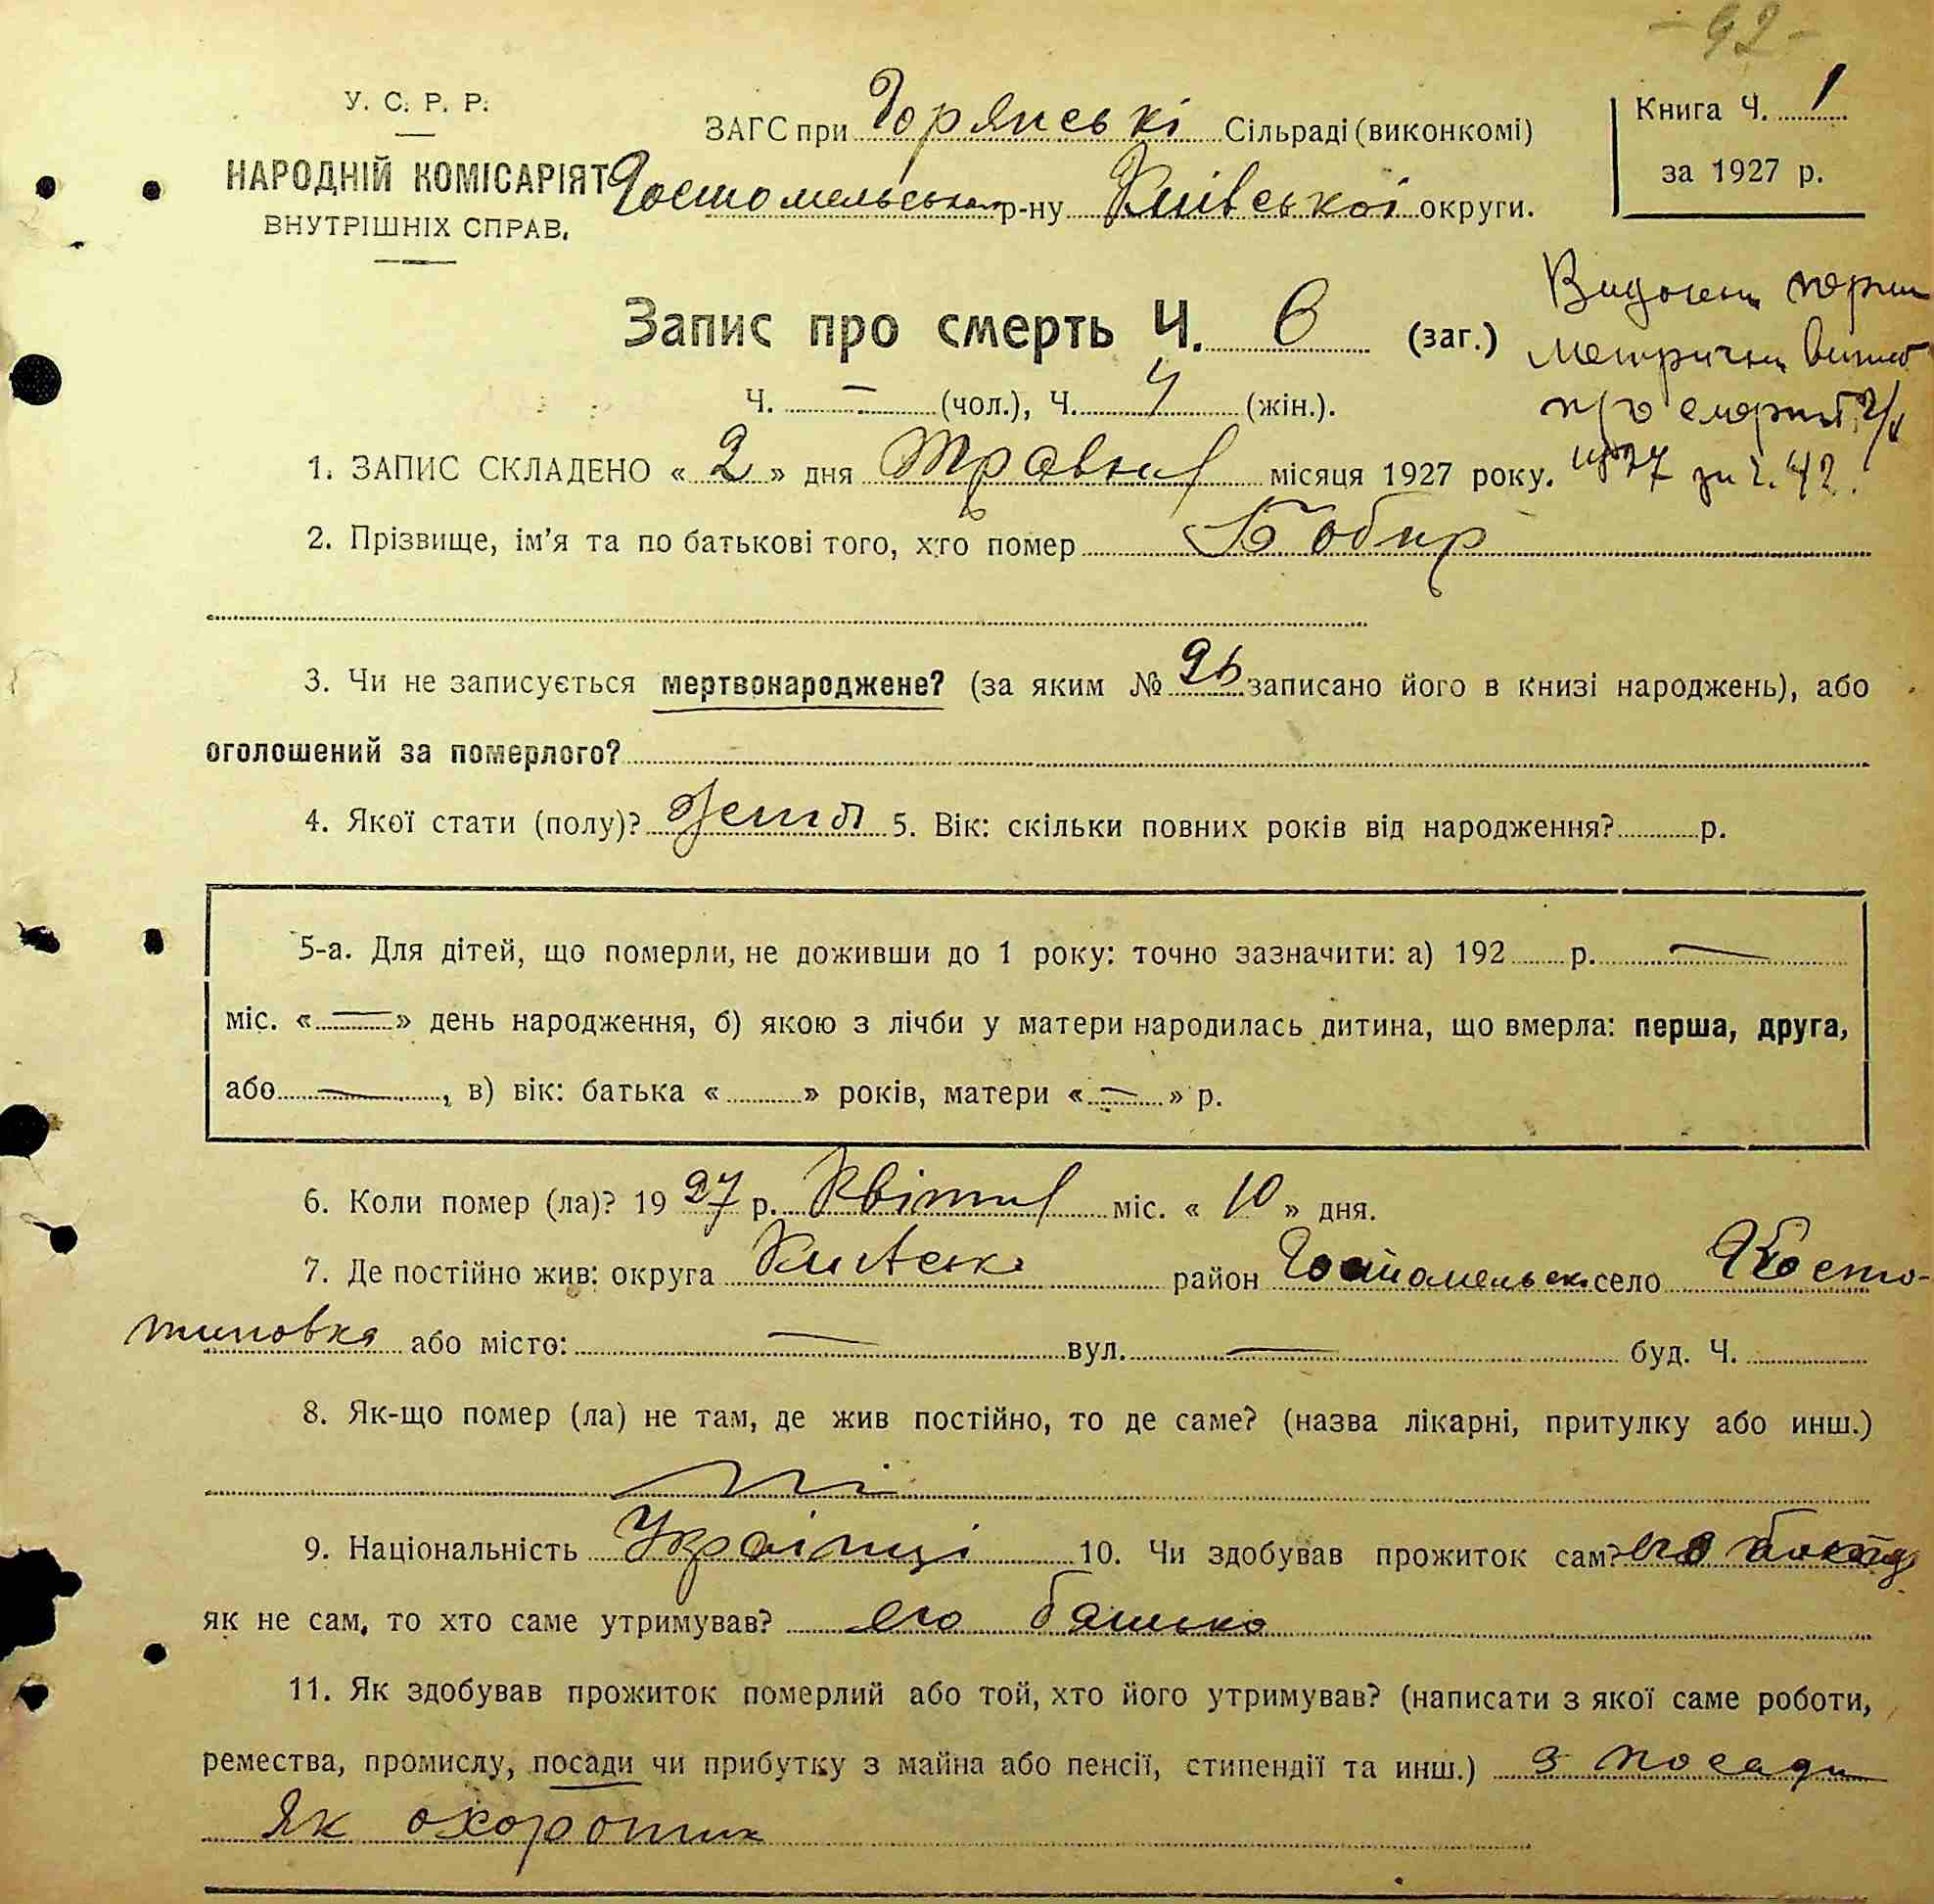 - 92 -
У. С. Р. Р.
НАРОДНІЙ КОМІСАРІЯТ
ВНУТРІШНІХ СПРАВ.
ЗАГС при Горянські Сільраді (виконкомі)
Гостомельськ р-ну Київської округи.
Книга Ч. 1
за 1927 р.
Запис про смерть Ч. 6 (заг.)
Ч. — (чол.), Ч. 4 (жін.).
про за ч. 42.
1. ЗАПИС СКЛАДЕНО « 2 » дня Травня місяця 1927 року.
2. Прізвище, ім'я та по батькові того, хто помер Бобир
3. Чи не записується мертвонароджене? (за яким № 26 записано його в книзі народжень), або
оголошений за померлого?
4. Якої стати (полу)? 5. Вік: скільки повних років від народження? р.
5-а. Для дітей, що померли, не доживши до 1 року: точно зазначити: а) 192 р. —
міс. « — » день народження, б) якою з лічби у матери народилась дитина, що вмерла: перша, друга,
або —, в) вік: батька « » років, матери « — » р.
6. Коли помер (ла)? 19 27 р. Квітня міс. « 10 » дня.
7. Де постійно жив: округа Київська район Гостомельськ село Косто-
або місто: — вул. — буд. Ч.
8. Як-що помер (ла) не там, де жив постійно, то де саме? (назва лікарні, притулку або инш.)
ні
9. Національність Українці 10. Чи здобував прожиток сам? его
як не сам, то хто саме утримував? его батько
11. Як здобував прожиток померлий або той, хто його утримував? (написати з якої саме роботи,
ремества, промислу, посади чи прибутку з майна або пенсії, стипендії та инш.) з посади
як охоронник